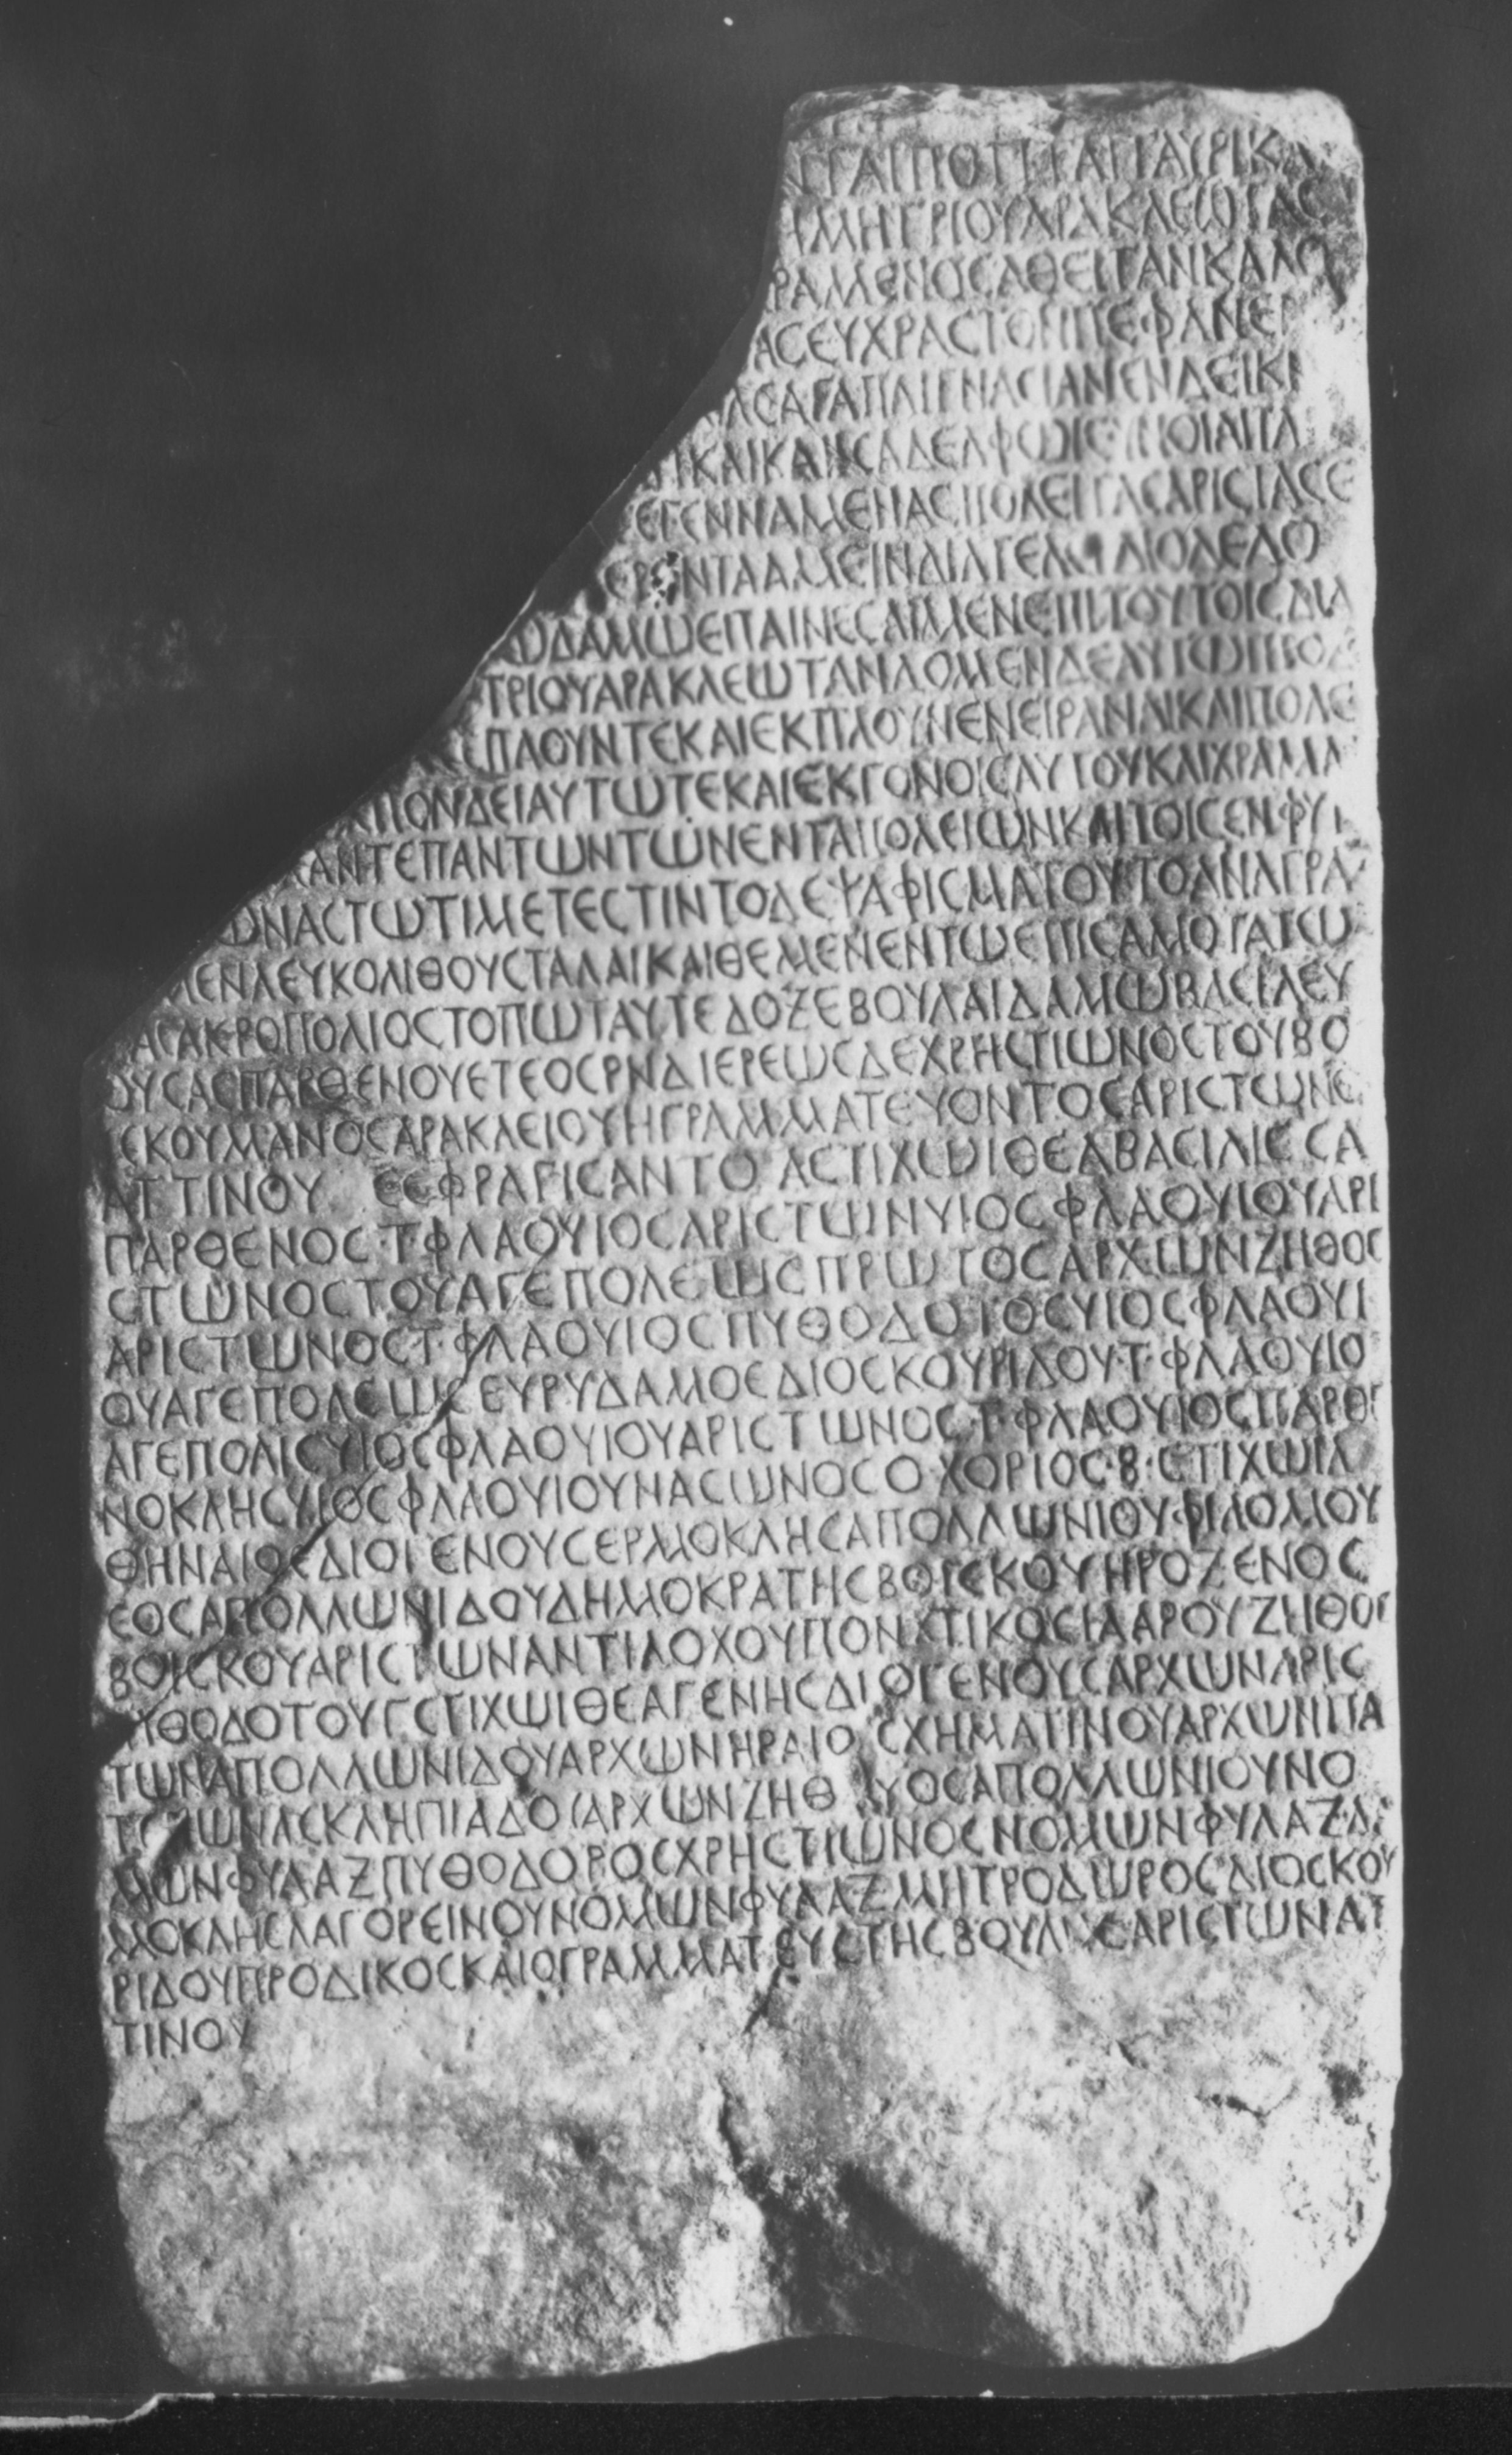 ΤΑΙΠΟΤΙΚΑΙΤΑΥΡΙΚΑ
ΑΜΗΤΡΙΟΥΑΡΑΚΛΕΩΤΑΣ
ΡΑΜΕΝΟΣΑΘΕΙΤΑΝΚΑΛΟ
ΑСΕΥΧΡΑСΤΟΝΠΕΦΑΝΕ
ΑСΑΓΑΠΑΙΓΝΑСΙΑΝΕΝΔΕΙΚΝ
ΙΚΑΙΚΑΙСΑΔΕΛΦΩ
ΕΓΕΝΝΑΜΕΝΑСΠΟΛΕΙΤΑСΑΡΙСΤΑСΕ
ΕΡΟΝΤΑΑΜΕΙΝΔΙΑΓΕΛ ΔΙΟΔΕΔΟ
ΩΔΑΜΩΕΠΑΙΝΕСΑΙΜΕΝΕΠΙΤΟΥΤΟΙСΔΙΑ
ΤΡΙΟΥΑΡΑΚΛΕΩΤΑΝΔΟΜΕΝΔΕΑΥΤΩΠΡΟΞ
СΠΛΟΥΝΤΕΚΑΙΕΚΠΛΟΥΝΕΝΕΙΡΑΝΑΙΚΑΙΠΟΛΕ
ΠΟΝΔΕΙΑΥΤΩΤΕΚΑΙΕΚΓΟΝΟΙСΑΥΤΟΥΚΑΙΧΡΑΜΑ
ΑΝΤΕΠΑΝΤΩΝΤΩΝΕΝΤΑΙΠΟΛΕΙΩΝΚΑΙΤΟΙСΕΝΦΥΛ
ΩΝΑСΤΩΤΙΜΕΤΕСΤΙΝΤΟΔΕΨΑΦΙСΜΑΤΟΥΤΟΑΝΑΓΡΑ
ΜΕΝΛΕΥΚΟΛΙΘΟΥСΤΑΛΑΙΚΑΙΘΕΜΕΝΕΝΤΩΕΠΙСΑΜΟΤΑΤΩ
ΑСΑΚΡΟΠΟΛΙΟСΤΟΠΩΤΑΥΤΕΔΟΞΕΒΟΥΛΑΙΔΑΜΩΒΑСΙΛΕΥ
ΟΥСΑСΠΑΡΘΕΝΟΥΕΤΕΟСΡΝΔΙΕΡΕΩСΔΕΧΡΗСΤΙΩΝΟСΤΟΥΒΟ
ΙСΚΟΥΜΑΝΟСΑΡΑΚΛΕΙΟΥΗΓΡΑΜΜΑΤΕΥΟΝΤΟСΑΡΙСΤΩΝΟ
ΑΤΤΙΝΟΥ ΕСΦΡΑΓΙСΑΝΤΟ ΑСΤΙΧΩΙΘΕΑΒΑСΙΛΙССΑ
ΠΑΡΘΕΝΟС·Τ·ΦΛΑΟΥΙΟСΑΡΙСΤΩΝΥΙΟСΦΛΑΟΥΙΟΥΑΡΙ
СΤΩΝΟСΤΟΥΑΓΕΠΟΛΕΩСΠΡΩΤΟСΑΡΧΩΝΖΗΘΟС
ΑΡΙСΤΩΝΟС·Τ·ΦΛΑΟΥΙΟСΠΥΘΟΔΟΤΟСΥΙΟСΦΛΑΟΥΙ
ΟΥΑΓΕΠΟΛΕΩСΕΥΡΥΔΑΜΟСΔΙΟСΚΟΥΡΙΔΟΥ·Τ·ΦΛΑΟΥΙΟ
ΑΓΕΠΟΛΙСΥΙΟСΦΛΑΟΥΙΟΥΑΡΙСΤΩΝΟС·Τ·ΦΛΑΟΥΙΟСΠΑΡΘΕ
ΝΟΚΛΗСΥΙΟСΦΛΑΟΥΙΟΥΝΑСΩΝΟСΟ·ΧΟΡΙΟС·Β·СΤΙΧΩΙΑ
ΘΗΝΑΙΟСΔΙΟΓΕΝΟΥСΕΡΜΟΚΛΗСΑΠΟΛΛΩΝΙΟΥ·ΦΙΛΟΜΟΥ
СΟСΑΠΟΛΛΩΝΙΔΟΥΔΗΜΟΚΡΑΤΗСΒΟΙСΚΟΥΗΡΟΞΕΝΟС
ΒΟΙСΚΟΥΑΡΙСΤΩΝΑΝΤΙΛΟΧΟΥΠΟΝΤΙΚΟСΙΛΑΡΟΥΖΗΘΟС
ΠΥΘΟΔΟΤΟΥΓСΤΙΧΩΙΘΕΑΓΕΝΗСΔΙΟΓΕΝΟΥСΑΡΧΩΝΑΡΙС
ΤΩΝΑΠΟΛΛΩΝΙΔΟΥΑΡΧΩΝΗΡΑΙΟСΧΗΜΑΤΙΝΟΥΑΡΧΩΝΠΑ
ΤΩΝΑСΚΛΗΠΙΑΔΟΥΑΡΧΩΝΖΗΘΥΟСΑΠΟΛΛΩΝΙΟΥΝΟ
ΜΩΝΦΥΛΑΞΠΥΘΟΔΟΡΟСΧΡΗСΤΙΩΝΟСΝΟΜΩΝΦΥΛΑΞΔΑ
ΜΟΚΛΗСΛΑΓΟΡΕΙΝΟΥΝΟΜΩΝΦΥΛΑΞΜΗΤΡΟΔΩΡΟСΔΙΟСΚΟΥ
ΡΙΔΟΥΠΡΟΔΙΚΟСΚΑΙΟΓΡΑΜΜΑΤΕΥСΤΗСΒΟΥΛΗСΑΡΙСΤΩΝΑΤ
ΤΙΝΟΥ